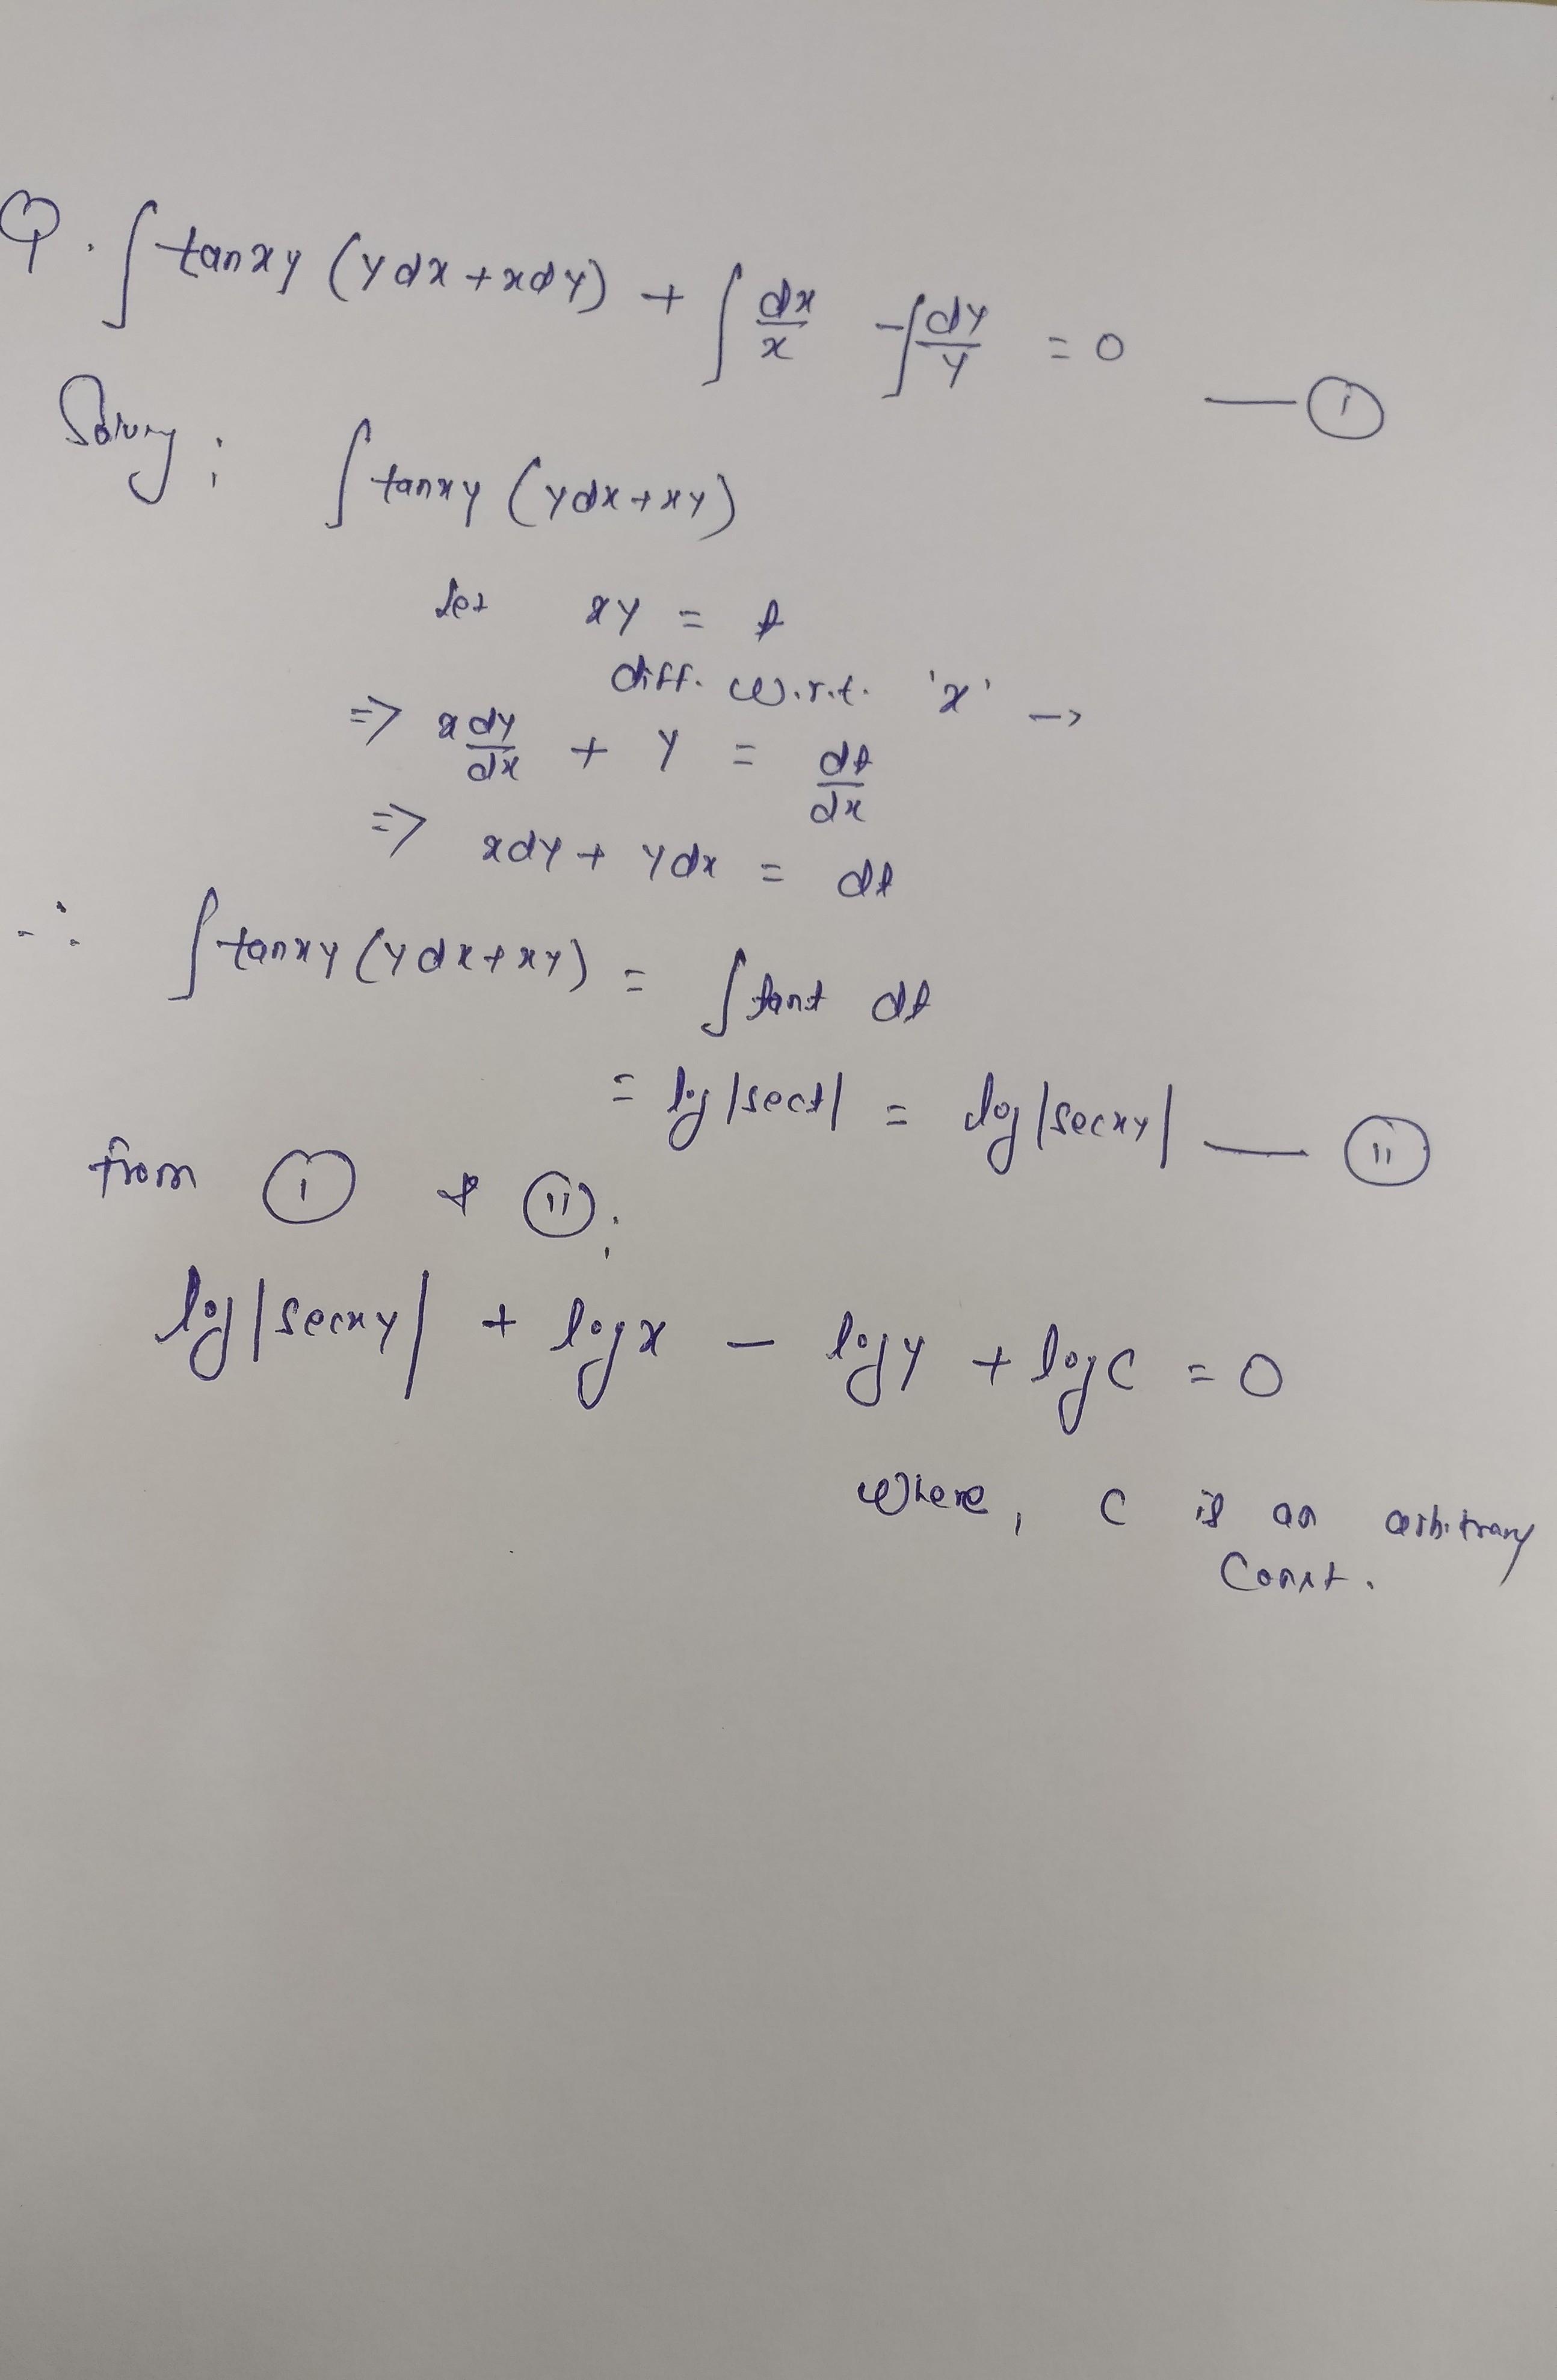 Q. ∫ tanxy (ydx + xdy) + ∫ dx/x - ∫ dy/y = 0 — (i)
Solving; ∫ tanxy (ydx + xy)
let xy = t
diff. w.r.t. 'x' →
⇒ x dy/dx + y = dt/dx
⇒ xdy + ydx = dt
∴ ∫ tanxy (ydx + xy) = ∫ tant dt
= log |sect| = log |secxy| — (ii)
from (i) & (ii);
log |secxy| + logx - logy + logc = 0
where, c is an arbitrary
const.